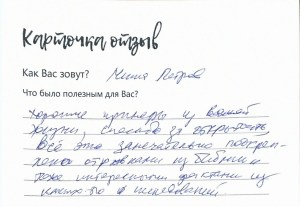 Карточка отзыв
Как Вас зовут? Миша Петров
Что было полезным для Вас?
Хорошие примеры из вашей
жизни, спасибо за открытость
Всё это замечательно подкреп-
лено отрывками из Библии и
тоже интересными фактами из